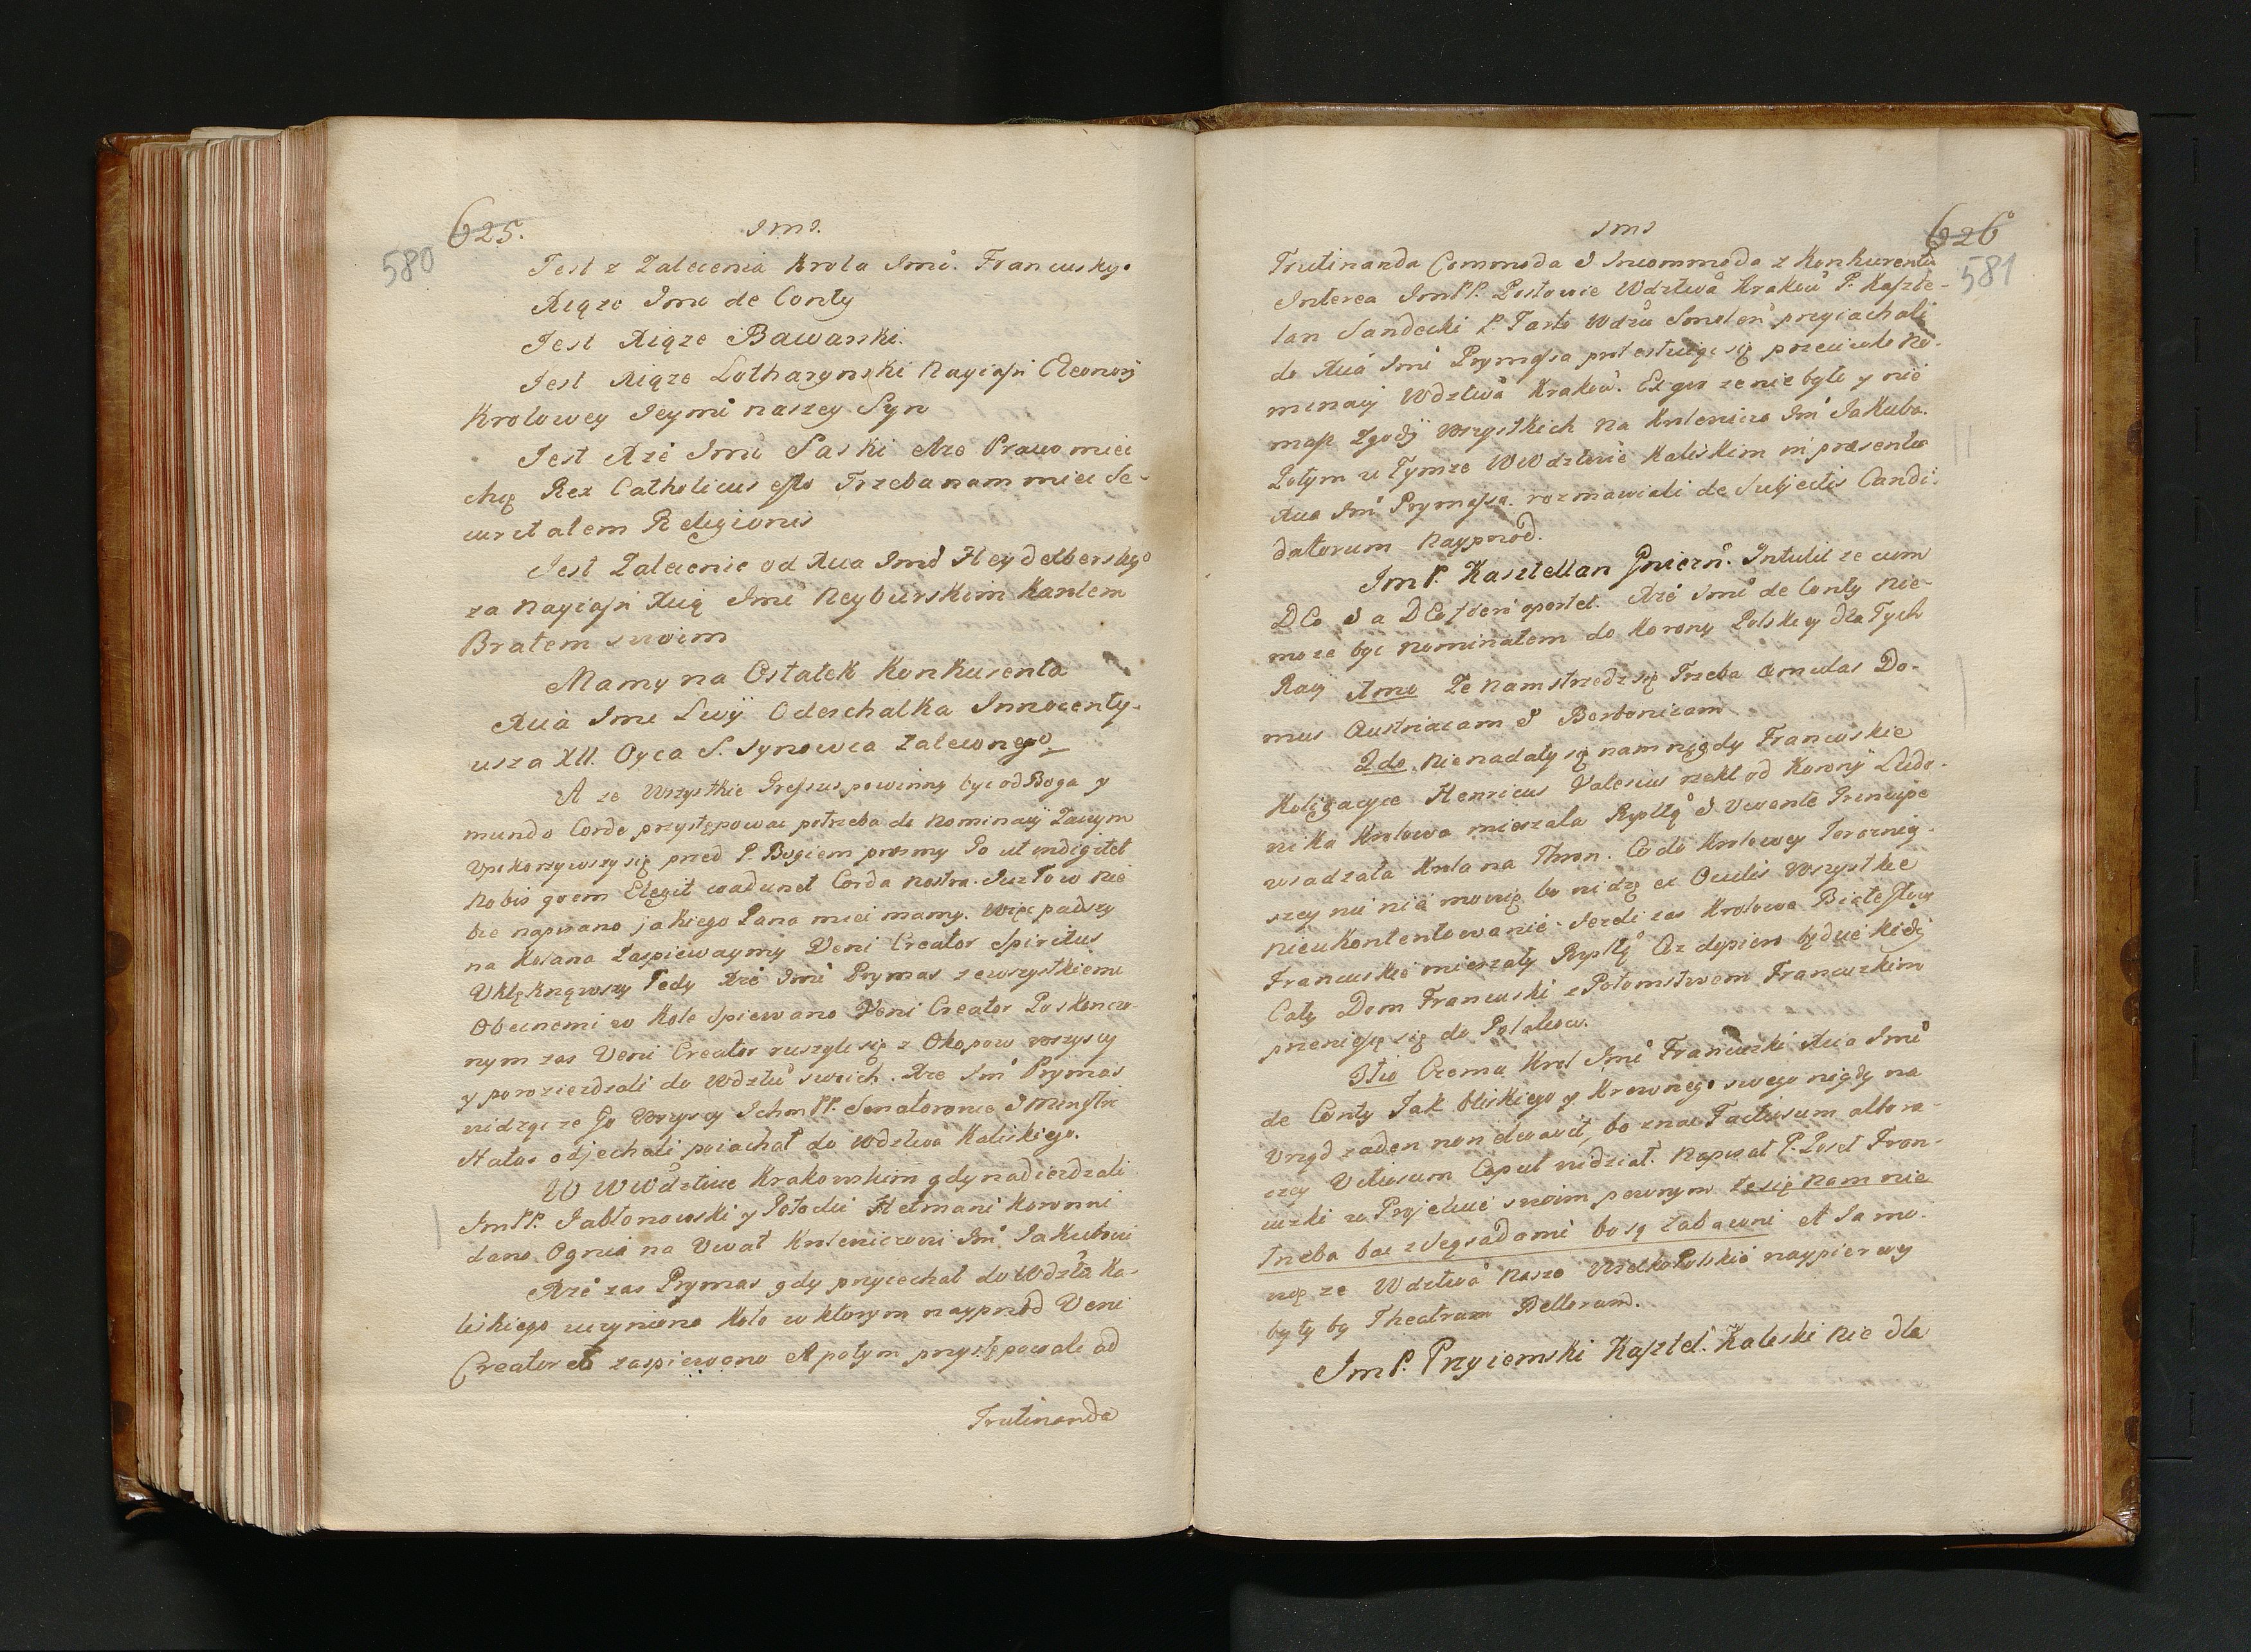 625.
580
Jms.
Jest z Zalecenia Krola Jmci. Francuskgo
Xiąze Jmc de Conty
Jest Xiąze Bawarski.
Jest Xiąze Lotharynski Nayiaśń Eleonory
Krolowey Jeymci naszey Syn
Jest Xże Jmć Saski Ale Prawo miec
chcę Rex Catholicus esto Trzeba nam miec Se-
curitatem Religionis
Jest Zalecenie od Xcia Jmć Heydelberskgo
za Nayiaśń Xcią Jmć Neyburskim Karolem
Bratem swoim
Mamy na Ostatek Konkurenta
Xcia Jmc Liwij Odeschalka Innocenty-
usza XII. Oyca S. Synowca zalecone​go
A ze Wszystkie Gressus powinny byc od Boga y
mundo Corde przystępowac potrzeba do Nominacij Zaczym
upokorzywszy się przed P. Bogiem prosmy Go ut indigitet
Nobis quem Elegit coadunet Corda nostra. Juz To w Nie
bie napisano jakiego Pana miec mamy. Więc padszy
na Kolana Zaspiewaymy Veni Creator Spiritus
Uklęknąwszy Tedy Xże Jmć Prymas z wszystkiemi
Obecnemi w Kole spiewano Veni Creator Po skonczo-
nym zas Veni Creator ruszyli się z Okopow wszyscy
y porozierdzali do Wdztw swoich. Xże Jmć Prymas
widząc ze Go Wszyscy Ichm PP. Senatorowie J Ministri
Status odjechali poiachał do Wdztwa Kaliskiego.
W WWdztwie Krakowskim gdy nadierdzali
JmPP. Jabłonowski y Potocki Hetmani Koronni
dano Ognia na Vivat Krolewiczowi Jmć Jakubowi
Xże zas Prymas gdy przyiechał do Wdztwa Ka-
liskiego uczyniono Koło w ktorym nayprzod Veni
Creator zaspiewano A potym przystępowali ad
Trutinanda
Jms
626
581
Trutinanda Commoda J Incommoda z Konkurentow
Interea JmPP. Posłowie Wdztwa Krakow P. Kaszte-
lan Sandecki P. Tarło Wdzic Smolen przyiachali
do Xcia Jmć Prymasa protestuiąc się przeciwko No-
minacij Wdztwa Krakow. Ex quo ze nie było y nie
masz Zgody Wszystkich na Krolewicza Jmć Jakuba.
Potym w Tymze WWdztwie Kaliskim in praesentia
Xcia Jmć Prymasa rozmawiali de Subjectis Candi-
datorum Nayprzod.
JmP. Kasztellan Gniezń. Intulit ze cum
DEo J a DEo fieri oportet. Xże Jmć de Conty nie
moze byc nominatem do Korony Polskiey dla Tych
Racij 1mo Ze nam strzedz się Trzeba aemulas Do-
mus Austriacam J Borbonicam
2do. Nie nadały się nam nigdy Francuskie
Koligacye Henricus Valesius uciekł od Korony Ludo-
wika Krolowa mieszała Rpltą J vivente Principe
wsadzała Krola na Thron. Co do Krolowey Teraznie​y-
szey nic nie mowię bo widzę ex Oculis Wszystkie
nieukontentowanie. Jezeli zas Krolowe Białegłowy
Francuskie mieszały Rpltą Coz dopiero będzie kiedy
Cały Dom Francuski z Potomstwem Francuzkim
przeniesie się do Polakow.
3tio Czemu Krol Jmć Francuzki Xcia Jmć
de Conty Tak bliskiego y Krewnego swego nigdy na
Urząd zaden non elevavit, bo znac Factiosum albo ra-
czey Vitiosum Caput widział. Napisał P. Poseł Fran-
cuzki w Projekcie swoim pewnym ze się nam nie
trzeba bac z Sąsiadami bo są zabawni A Ja mo-
wię ze Wdztwa Nasze Wielkopolskie naypierwey
były by Theatrum Bellorum.
JmP. Przyiemski Kasztel. Kaliski Nie dla